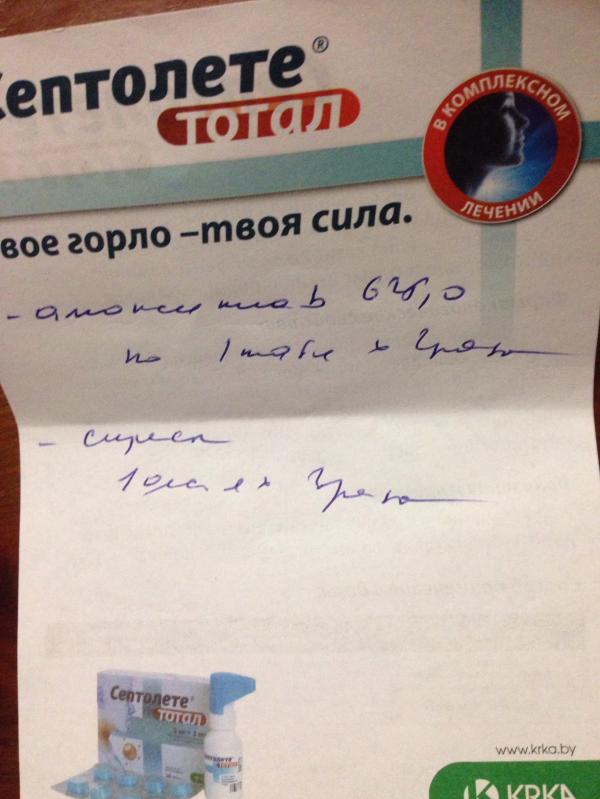 Септолете®
тотал
В КОМПЛЕКСНОМ
ЛЕЧЕНИИ
вое горло –твоя сила.
- амоксиклав 625,0
по 1 табл х 2 раза
-
1 х 3 раза
Септолете®
тотал
Септолете
тотал
www.krka.by
KRKA